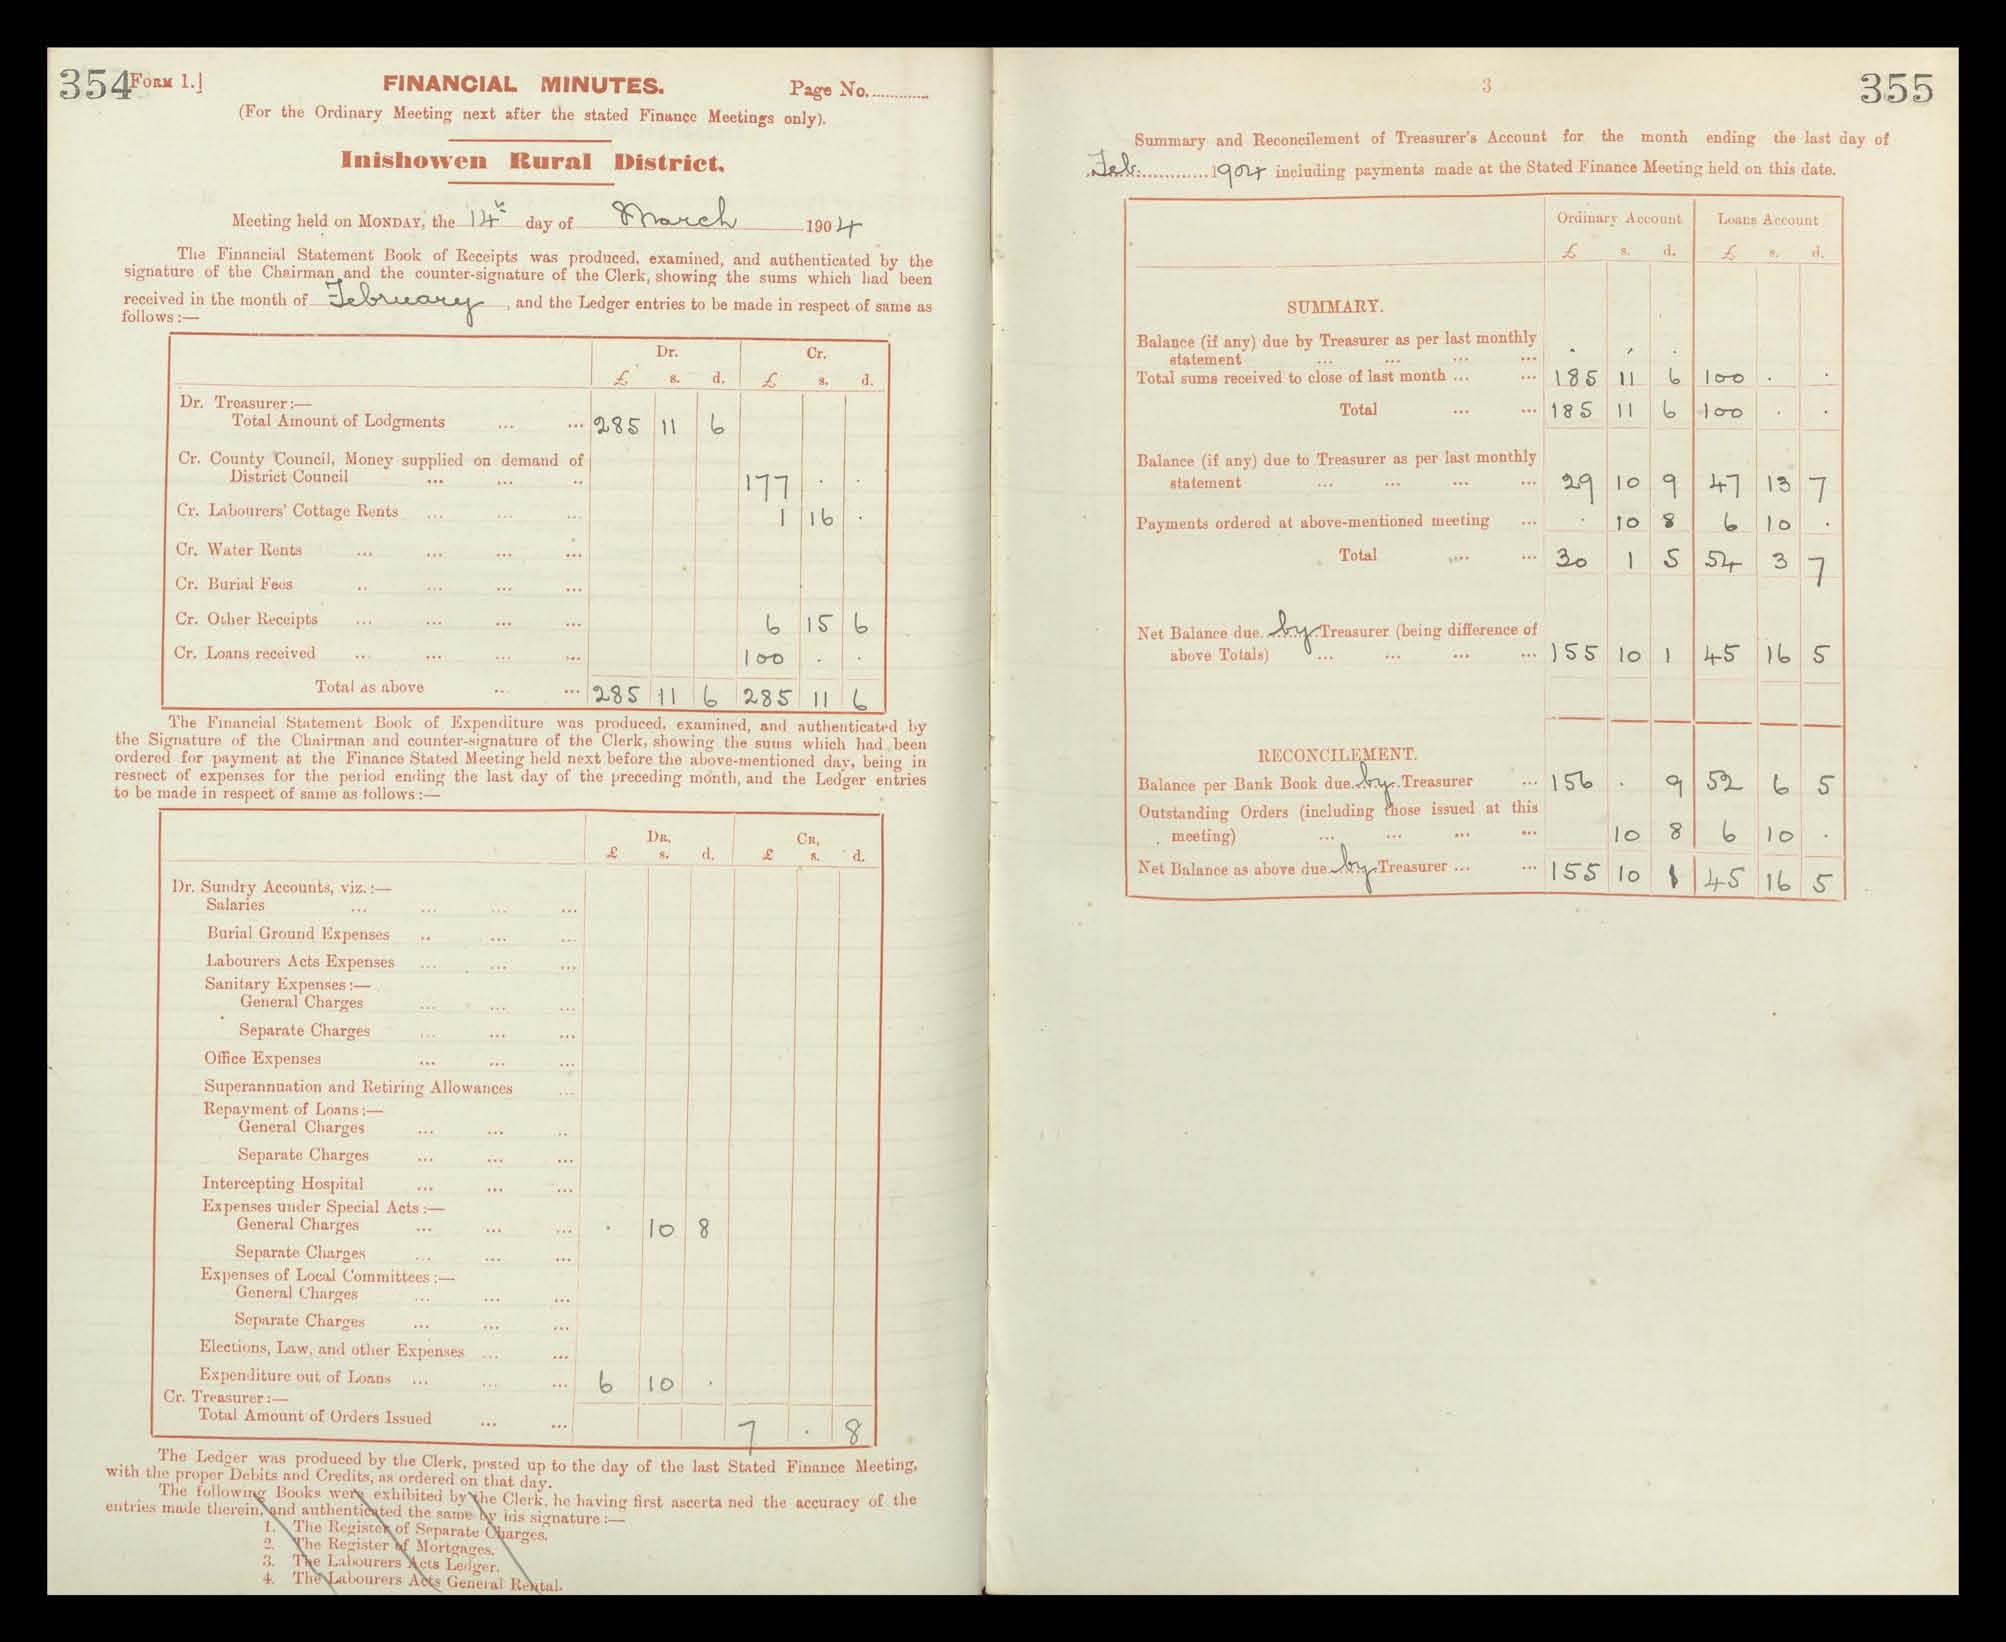 354 Form 1.] FINANCIAL MINUTES. Page No.............
(For the Ordinary Meeting next after the stated Finance Meetings only).
Inishowen Rural District.
Meeting held on MONDAY, the 14th day of March 1904
The Financial Statement Book of Receipts was produced, examined, and authenticated by the
signature of the Chairman and the counter-signature of the Clerk, showing the sums which had been
received in the month of February, and the Ledger entries to be made in respect of same as
follows :—
Dr. Cr.
£ s. d. £ s. d.
Dr. Treasurer :—
Total Amount of Lodgments ... ... 285 11 6
Cr. County Council, Money supplied on demand of
District Council ... ... .. 177 . .
Cr. Labourers' Cottage Rents ... ... ... 1 16 .
Cr. Water Rents ... ... ... ...
Cr. Burial Fees .. ... ... ...
Cr. Other Receipts ... ... ... ... 6 15 6
Cr. Loans received ... ... ... ... 100 . .
Total as above ... ... 285 11 6 285 11 6
The Financial Statement Book of Expenditure was produced, examined, and authenticated by
the Signature of the Chairman and counter-signature of the Clerk, showing the sums which had been
ordered for payment at the Finance Stated Meeting held next before the above-mentioned day, being in
respect of expenses for the period ending the last day of the preceding month, and the Ledger entries
to be made in respect of same as follows :—
DR. CR,
£ s. d. £ s. d.
Dr. Sundry Accounts, viz. :—
Salaries ... ... ... ...
Burial Ground Expenses .. ... ...
Labourers Acts Expenses ... ... ...
Sanitary Expenses :—
General Charges ... ... ...
Separate Charges ... ... ...
Office Expenses ... ... ...
Superannuation and Retiring Allowances ...
Repayment of Loans :—
General Charges ... ... ..
Separate Charges ... ... ...
Intercepting Hospital ... ... ...
Expenses under Special Acts :—
General Charges ... ... ... . 10 8
Separate Charges ... ... ...
Expenses of Local Committees :—
General Charges ... ... ...
Separate Charges ... ... ...
Elections, Law, and other Expenses ... ...
Expenditure out of Loans ... ... ... 6 10 .
Cr. Treasurer :—
Total Amount of Orders Issued ... ... 7 . 8
The Ledger was produced by the Clerk, posted up to the day of the last Stated Finance Meeting,
with the proper Debits and Credits, as ordered on that day.
The following Books were exhibited by the Clerk, he having first ascerta ned the accuracy of the
entries made therein, and authenticated the same by his signature :—
1. The Register of Separate Charges.
2. The Register of Mortgages.
3. The Labourers Acts Ledger.
4. The Labourers Acts General Rental.
3 355
Summary and Reconcilement of Treasurer's Account for the month ending the last day of
Feb. 1904 including payments made at the Stated Finance Meeting held on this date.
Ordinary Account Loans Account
£ s. d. £ s. d.
SUMMARY.
Balance (if any) due by Treasurer as per last monthly
statement ... ... ... ... . . .
Total sums received to close of last month ... ... 185 11 6 100 . .
Total ... ... 185 11 6 100 . .
Balance (if any) due to Treasurer as per last monthly
statement ... ... ... ... 29 10 9 47 13 7
Payments ordered at above-mentioned meeting ... . 10 8 6 10 .
Total ... ... 30 1 5 54 3 7
Net Balance due by Treasurer (being difference of
above Totals) ... ... ... ... 155 10 1 45 16 5
RECONCILEMENT.
Balance per Bank Book due by Treasurer ... 156 . 9 52 6 5
Outstanding Orders (including those issued at this
meeting) ... ... ... ... 10 8 6 10 .
Net Balance as above due by Treasurer ... ... 155 10 1 45 16 5